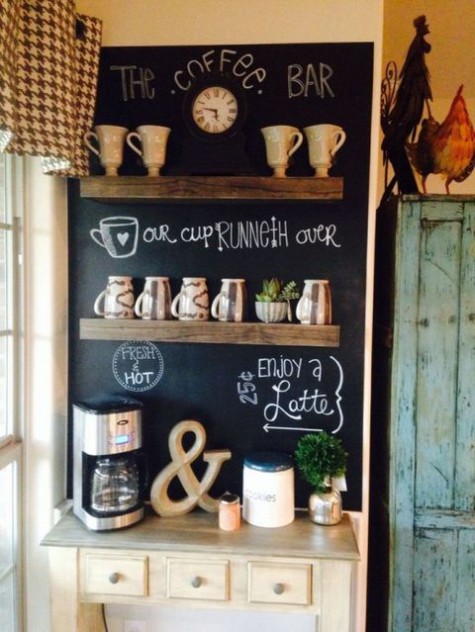 THE COFFEE BAR
OUR CUP RUNNETH OVER
FRESH
&
HOT
25¢
ENJOY A
Latte
&
cookies